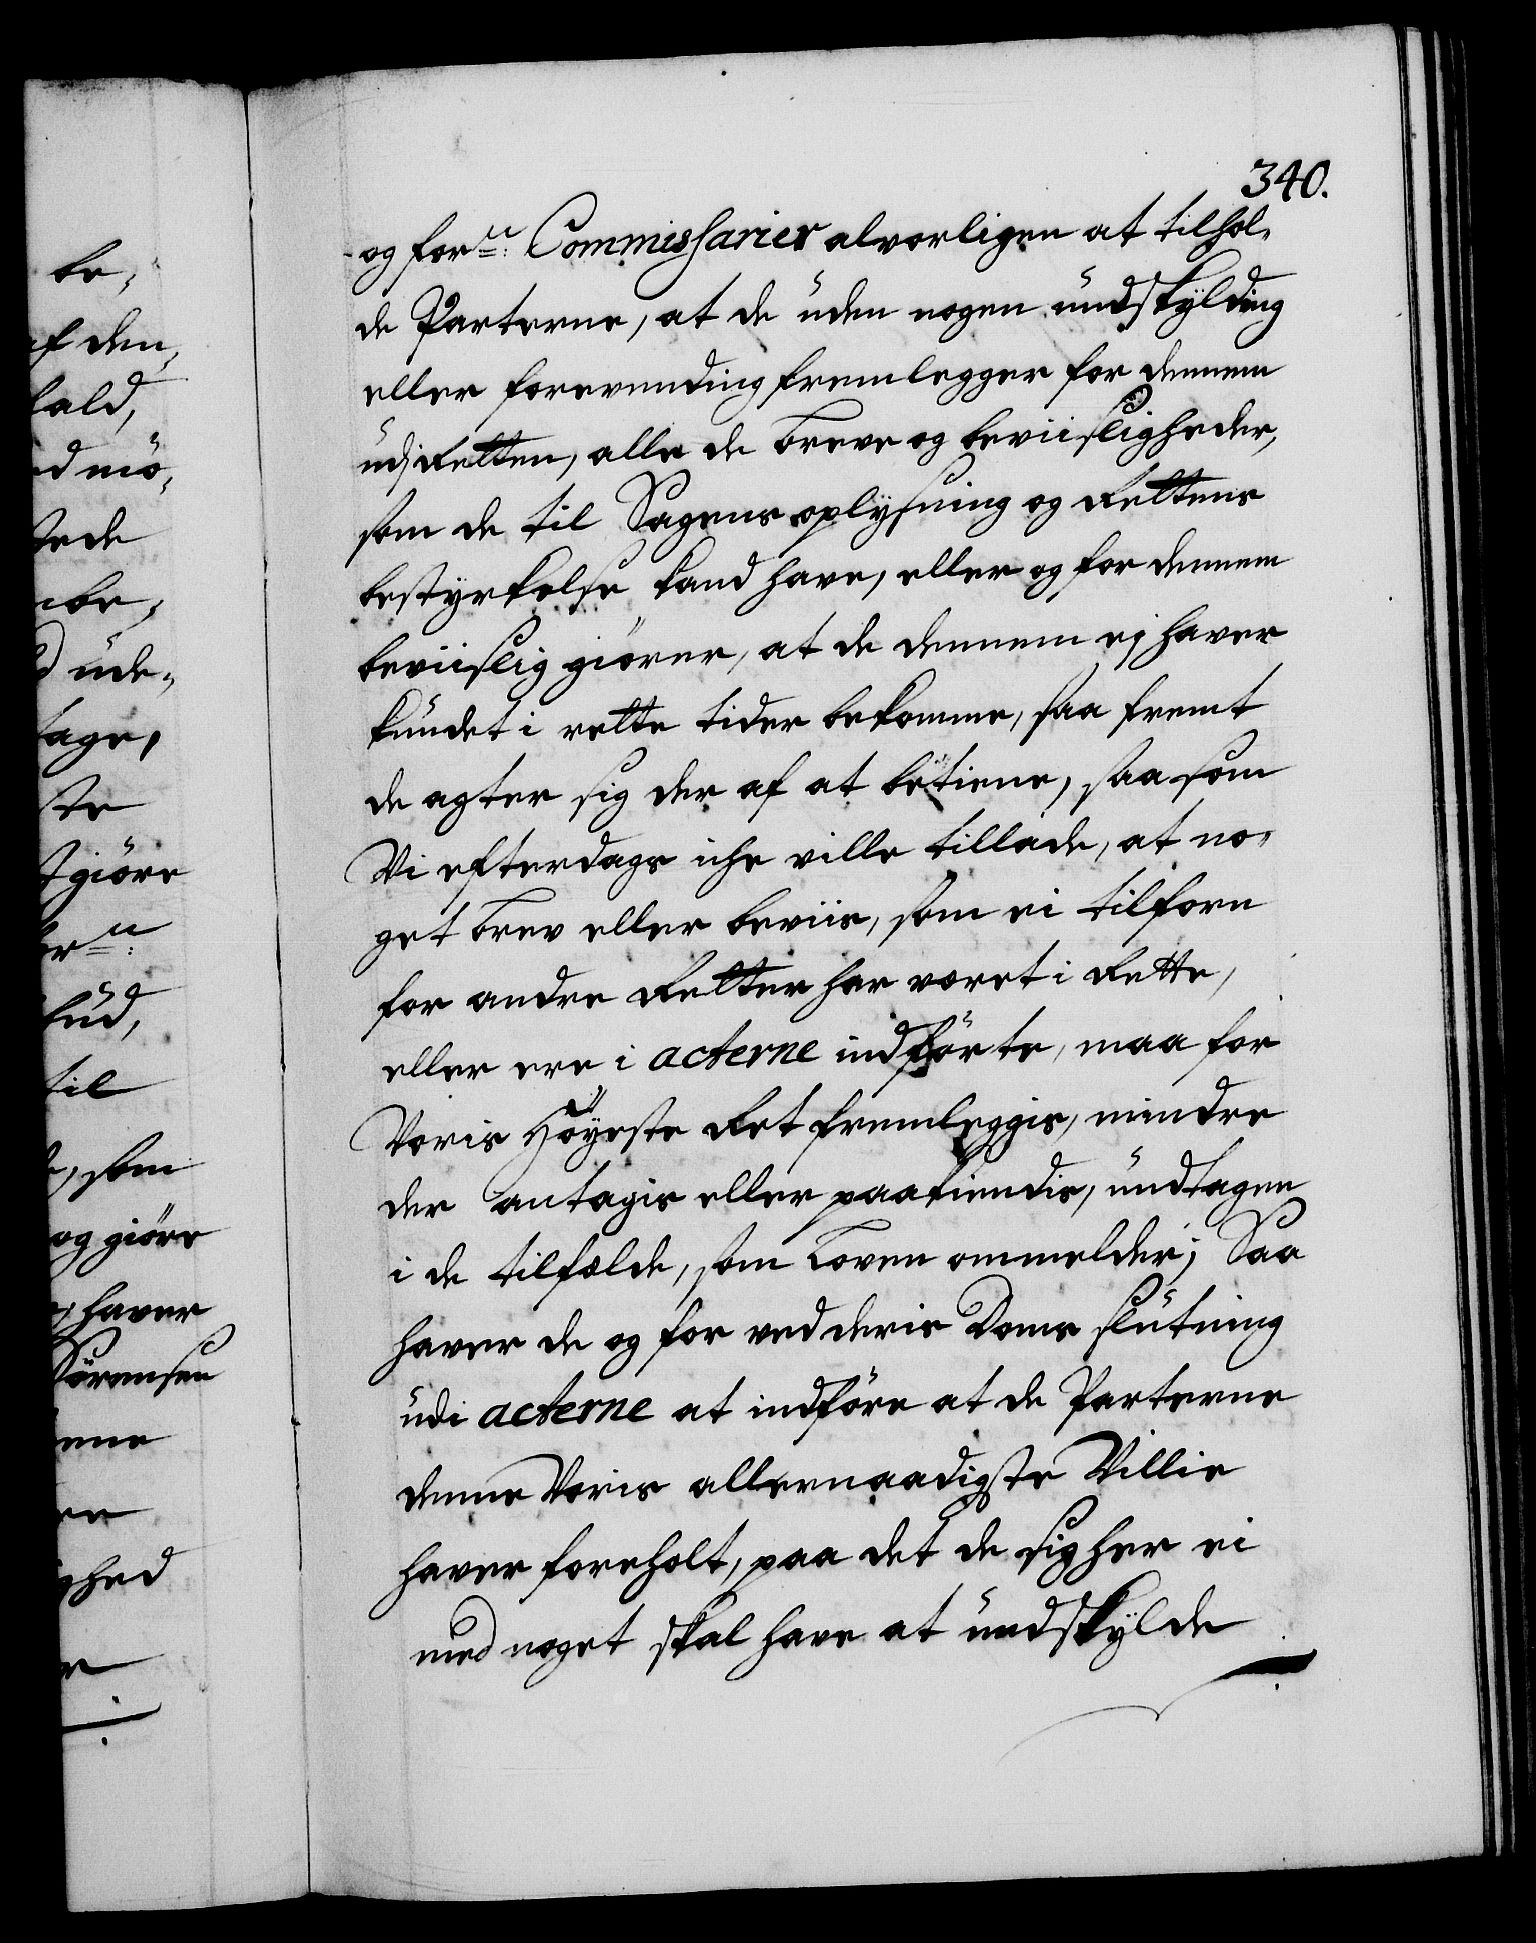 340.
og for<sup>ne</sup>: Commissarier alvorligen at tilhol-
de Parterne, at de uden nogen undskylding
eller forevending fremlegger for dennem
udj Retten, alle de breve og beviisligheder,
som de til Sagens oplysning og Rettens
bestyrkelse kand have, eller og for dennem
beviislig giörer, at de dennem ej haver
kundet i rette tider bekomme, saa fremt
de agter sig der af at betiene, saasom
Vi efterdags iche ville tillade, at no-
get brev eller beviis, som ei tilforn
for andre Retter har været i Rette,
eller ere i acterne indförte, maa for
Voris Höyeste Ret fremleggis, mindre
der antagis eller paakiendis, undtagen
i de tilfælde, som Loven ommelder; Saa
haver de og for ved deris Doms slutning
udi acterne at indföre at de Parterne
denne Voris allernaadigste Villie
haver foreholt, paa det de sig her ei
med noget skal have at undskylde
be,
af den,
fald,
ed mö,
stede
d ude,
tage,
ste
t giöre
til
som
og giöre
haver
Sörensen